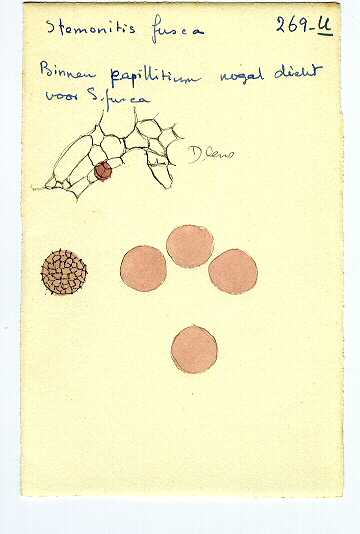 Stemonitis fusca 269-U
Binnen papillitium nogal dicht
voor S. fusca